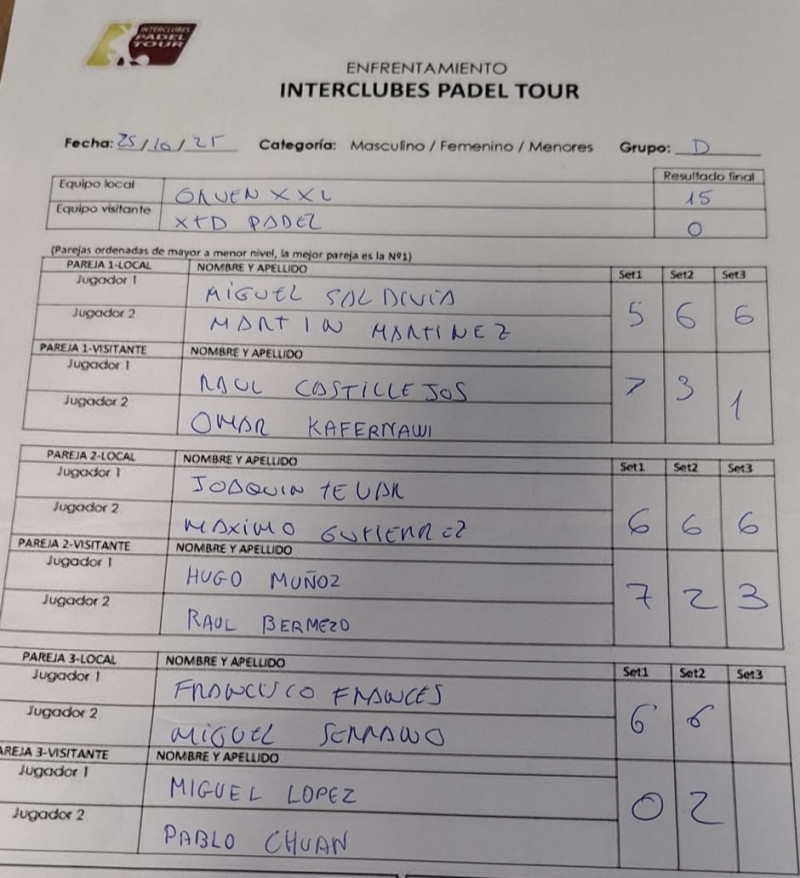 INTERCLUBES
PADEL
TOUR
ENFRENTAMIENTO
INTERCLUBES PADEL TOUR
Fecha: 25/10/25 Categoría: Masculino / Femenino / Menores Grupo: D
Resultado final
Equipo local ORVEN XXL 15
Equipo visitante XTD PADEL 0
(Parejas ordenadas de mayor a menor nivel, la mejor pareja es la Nº1)
PAREJA 1-LOCAL NOMBRE Y APELLIDO Set1 Set2 Set3
Jugador 1 MIGUEL SALDIVIA
Jugador 2 MARTIN MARTINEZ 5 6 6
PAREJA 1-VISITANTE NOMBRE Y APELLIDO
Jugador 1 RAUL CASTILLEJOS 7 3 1
Jugador 2 OMAR KAFERNAWI
PAREJA 2-LOCAL NOMBRE Y APELLIDO Set1 Set2 Set3
Jugador 1 JOAQUIN TEVAR
Jugador 2 MAXIMO GUTIERREZ 6 6 6
PAREJA 2-VISITANTE NOMBRE Y APELLIDO
Jugador 1 HUGO MUÑOZ 7 2 3
Jugador 2 RAUL BERMEZO
PAREJA 3-LOCAL NOMBRE Y APELLIDO Set1 Set2 Set3
Jugador 1 FRANCISCO FRANCES
Jugador 2 MIGUEL SERRANO 6 6
AREJA 3-VISITANTE NOMBRE Y APELLIDO
Jugador 1 MIGUEL LOPEZ 0 2
Jugador 2 PABLO CHUAN